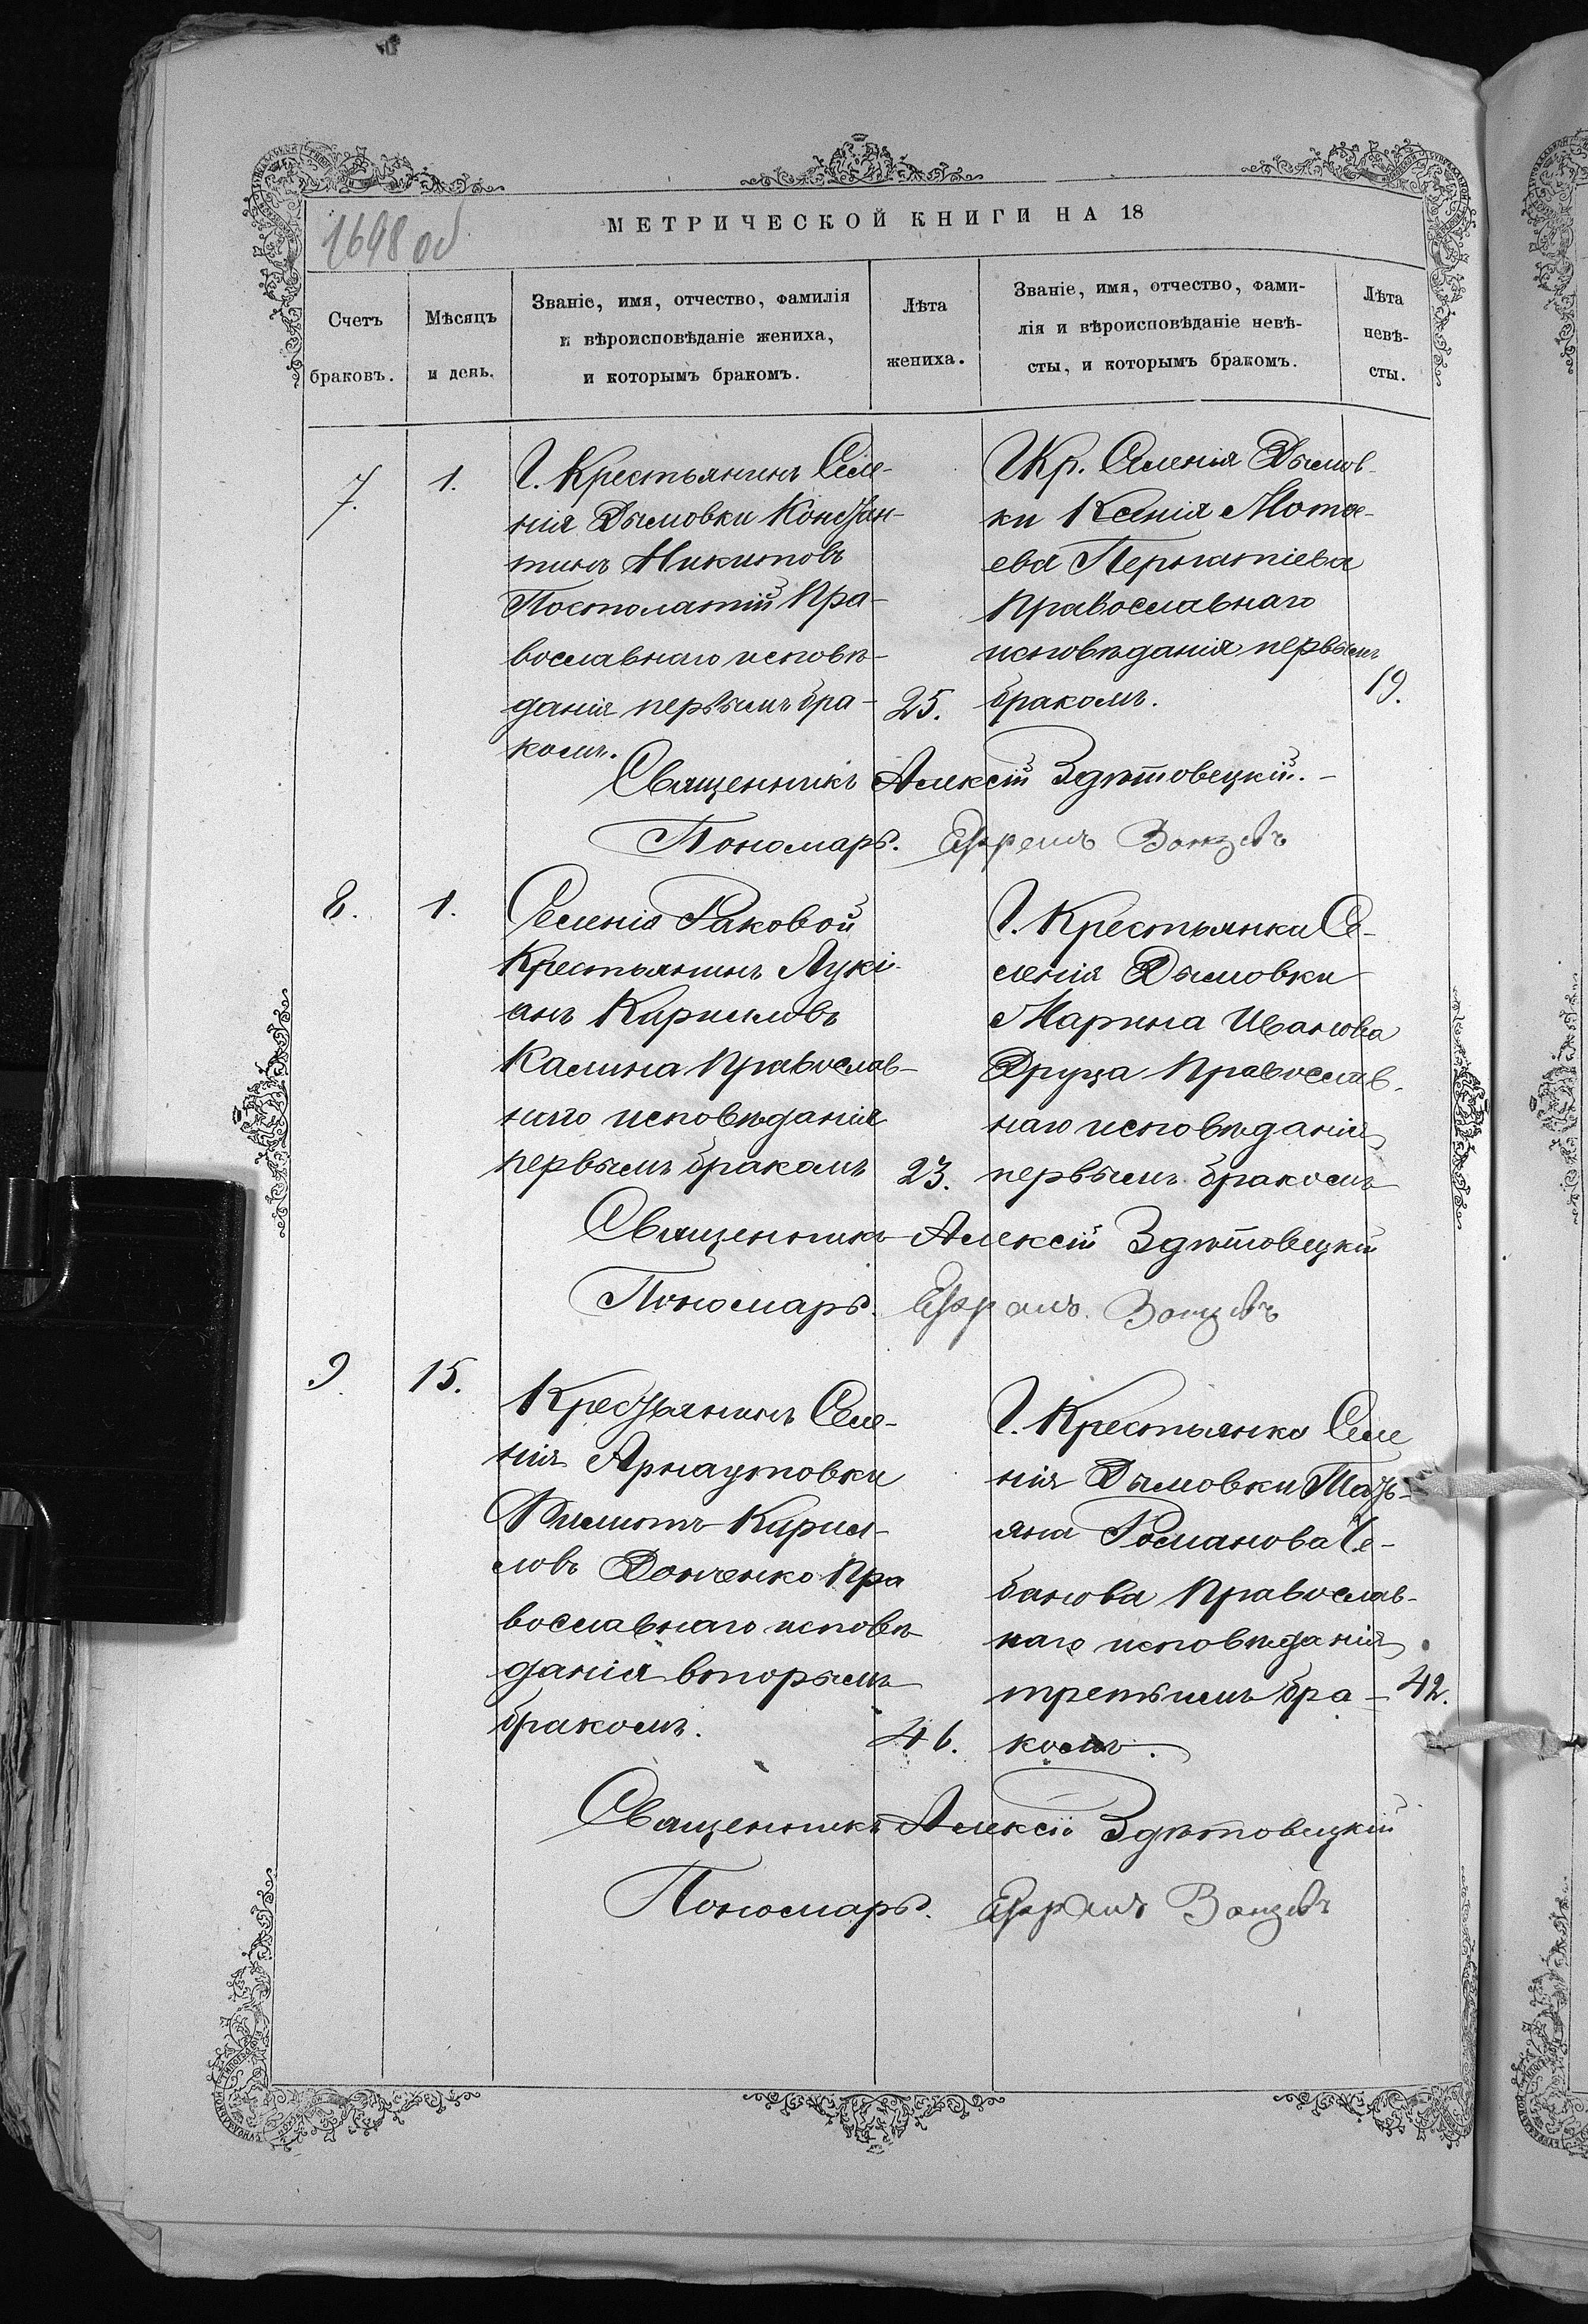 1698 об
МЕТРИЧЕСКОЙ КНИГИ НА 18
Счетъ браковъ.
Мѣсяцъ и день.
Званіе, имя, отчество, фамилія
и вѣроисповѣданіе жениха,
и которымъ бракомъ.
Лѣта
жениха.
Званіе, имя, отчество, фами-
лія и вѣроисповѣданіе невѣ-
сты, и которымъ бракомъ.
Лѣта
невѣ-
сты.
7.
1.
Крестьянинъ Селе-
нія Дымовки Констан-
тинъ Никитовъ
Постолатій Пра-
вославнаго исповѣ-
данія первымъ бра-
комъ.
25.
Кр. Селенія Дымов-
ки Ксенія Мотѳе-
ева
Православнаго
исповѣданія первымъ
бракомъ.
19.
Священникъ Алексій Здѣтовецкій.
Пономарь. Ефремъ
8.
1.
Селенія Раковой
Крестьянинъ Лукі-
анъ Кириловъ
Калина Православ-
наго исповѣданія
первымъ бракомъ
23.
Крестьянка Се-
ленія Дымовки
Марина Иванова
Друца Православ-
наго исповѣданія
первымъ бракомъ
Священникъ Алексій Здѣтовецкій
Пономарь. Ефремъ
9
15.
Крестьянинъ Селе-
нія Арнаутовки
Филиппъ Кирил-
ловъ Донченко Пра
вославнаго исповѣ
данія вторымъ
бракомъ.
46.
Крестьянка Селе
нія Дымовки Тать-
яна Романова Че-
банова Православ-
наго исповѣданія
третьимъ бра-
комъ.
42.
Священникъ Алексій Здѣтовецкій
Пономарь. Ефремъ